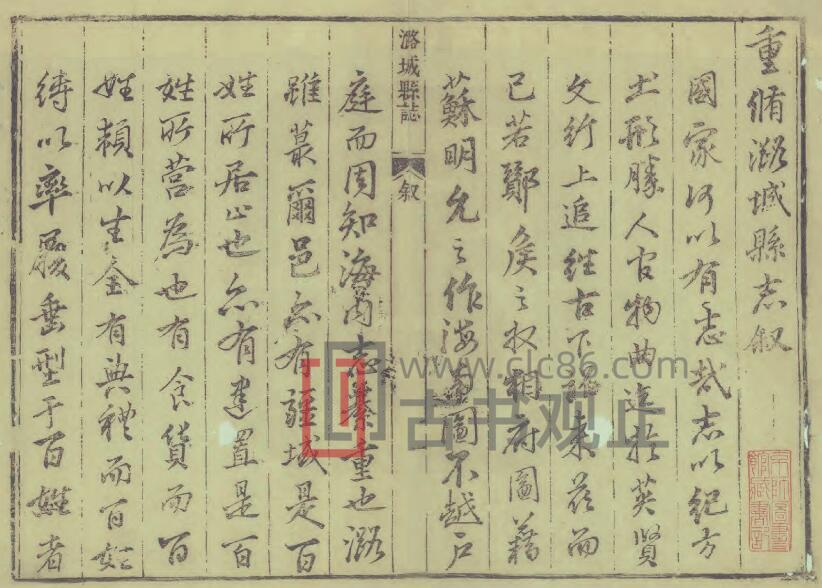 重脩潞城縣志叙
國家何以有志哉志以紀方
土形勝人官物曲迄於英賢
文行上追往古下 來茲而
已若酇侯之收相府圖籍
蘇明允之作海 圖不越戶
潞城縣誌
叙
庭而周知海內志綦重也潞
雖蕞爾邑亦有疆域是百
姓所居止也亦有建置是百
姓所營為也有食貨而百
姓賴以生全有典禮而百姓
得以率履垂型于百姓者
www.clc86.com
古书观止